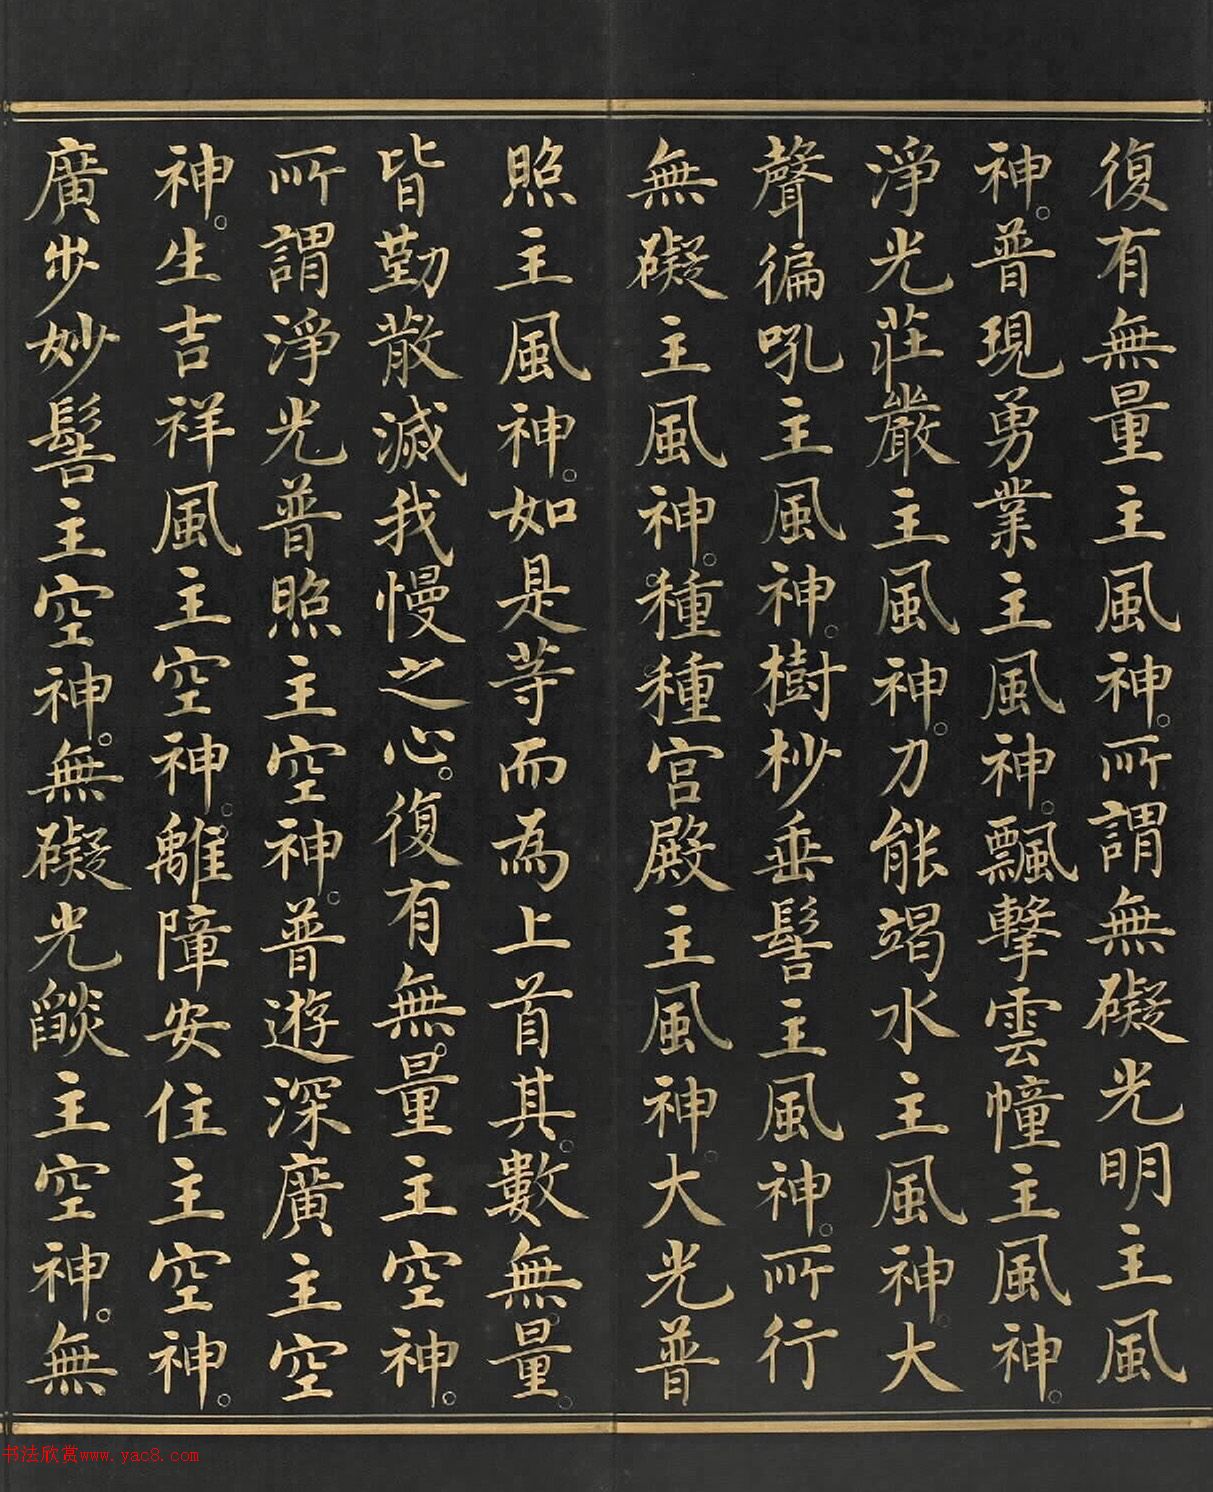 復有無量主風神。所謂無礙光明主風
神。普現勇業主風神。飄擊雲幢主風神。
淨光莊嚴主風神。力能竭水主風神。大
聲徧吼主風神。樹杪垂髻主風神。所行
無礙主風神。種種宮殿主風神。大光普
照主風神。如是等而為上首其。數無量。
皆勤散滅我慢之心。復有無量主空神。
所謂淨光普照主空神。普遊深廣主空
神。生吉祥風主空神。離障安住主空神。
廣步妙髻主空神。無礙光燄主空神。無
书法欣赏www.yac8.com